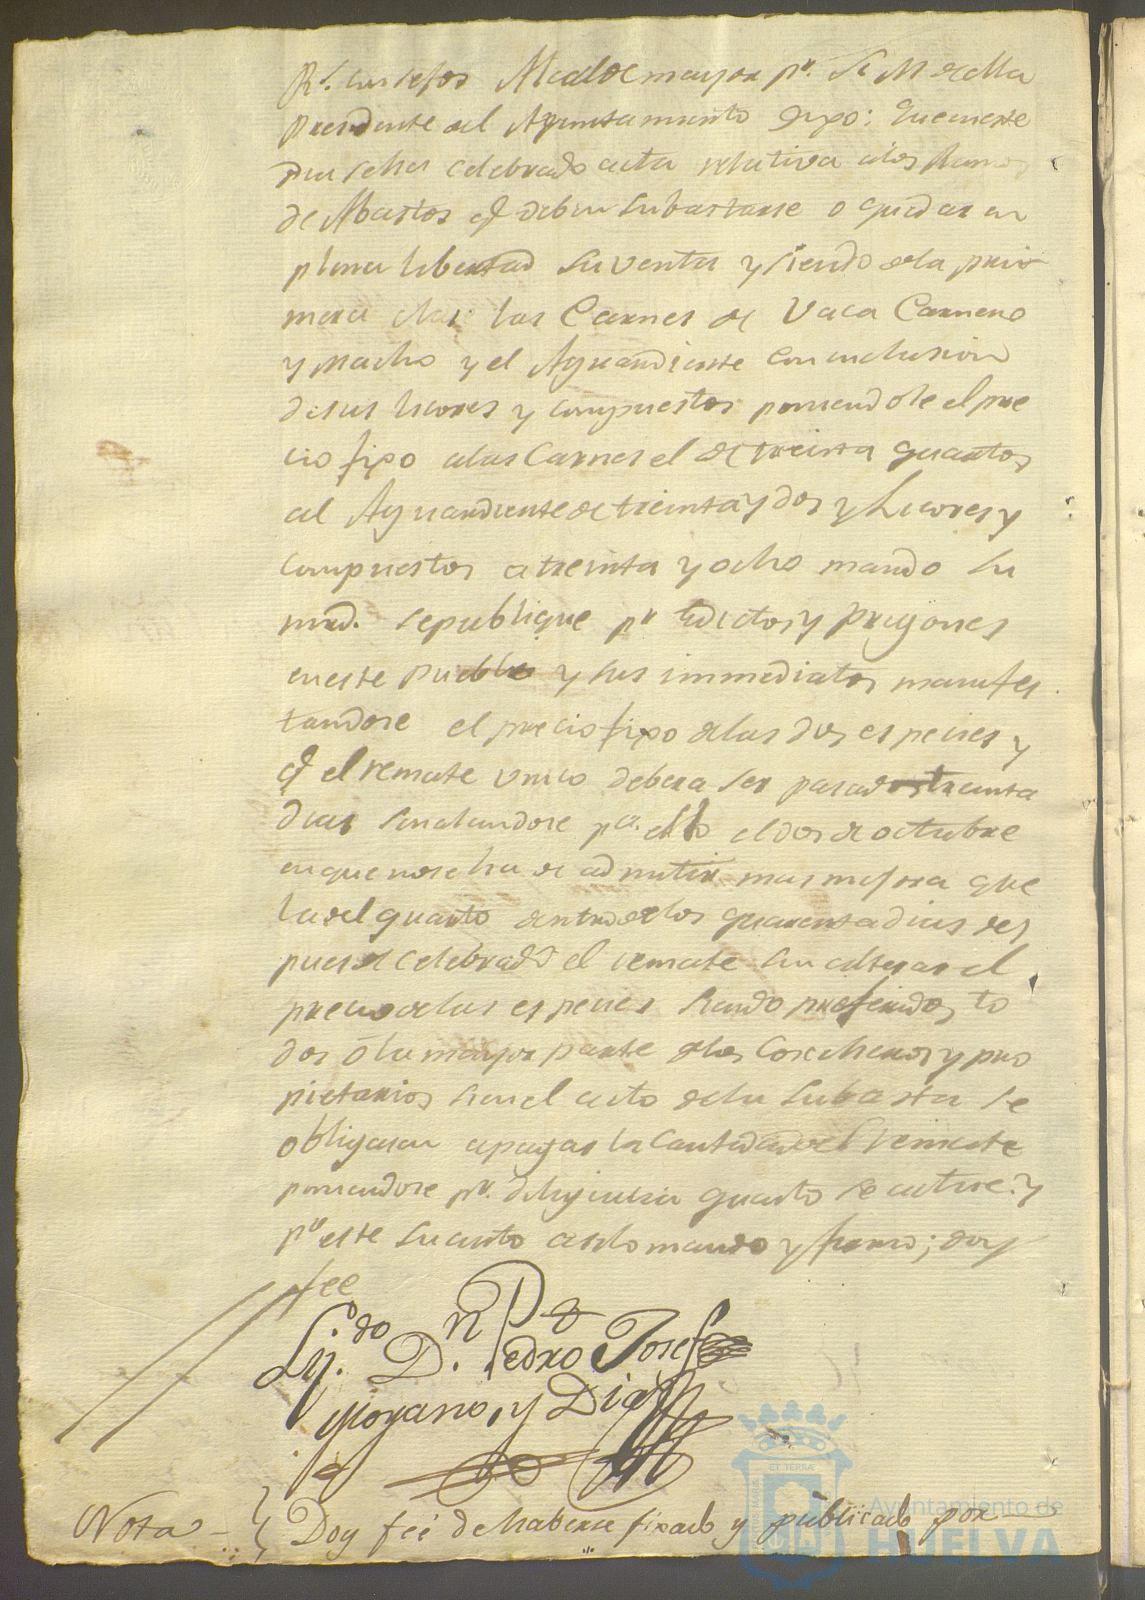 Rs. Consejos Alcalde mayor pr. S. M. de ella
Presidente del Ayuntamiento Dixo: Que en este
dia se ha celebrado acta relativa a los Ramos
de Abastos q deben subastarse o quedar en
plena libertad su venta y siendo de la pri
mera clase las Carnes de Vaca Carnero
y Macho y el Aguardiente con inclusion
de sus licores y compuestos poniendole el pre
cio fixo a las Carnes el de treinta quartos
al Aguardiente de treinta y dos y Licores y
compuestos a treinta y ocho mando su
mrd. se publique pr Edictos y Pregones
en este Pueblo y sus immediatos manifes
tandose el precio fixo de las dos especies y
q el remate unico debera ser pasados treinta
dias señalandose pa. ello el dos de octubre
en que no se ha de admitir mas mejora que
la del quarto dentro de los quarenta dias des
pues de celebrado el remate sin alterar el
precio de las especies siendo preferidos to
dos ó la mayor parte de los Cosecheros y pro
pietarios si en el acto de la subasta se
obligasen a pagar la Cantidad del remate
poniendose pr. diligencia quanto se actue. y
pr este su auto asi lo mando y firmo; doy
fee
Lij.do D.n Pedro Josef
Moyano, y Diaz
Nota - Doy feé de haberse fixado y publicado por
ET TERRÆ
Ayuntamiento de
HUELVA